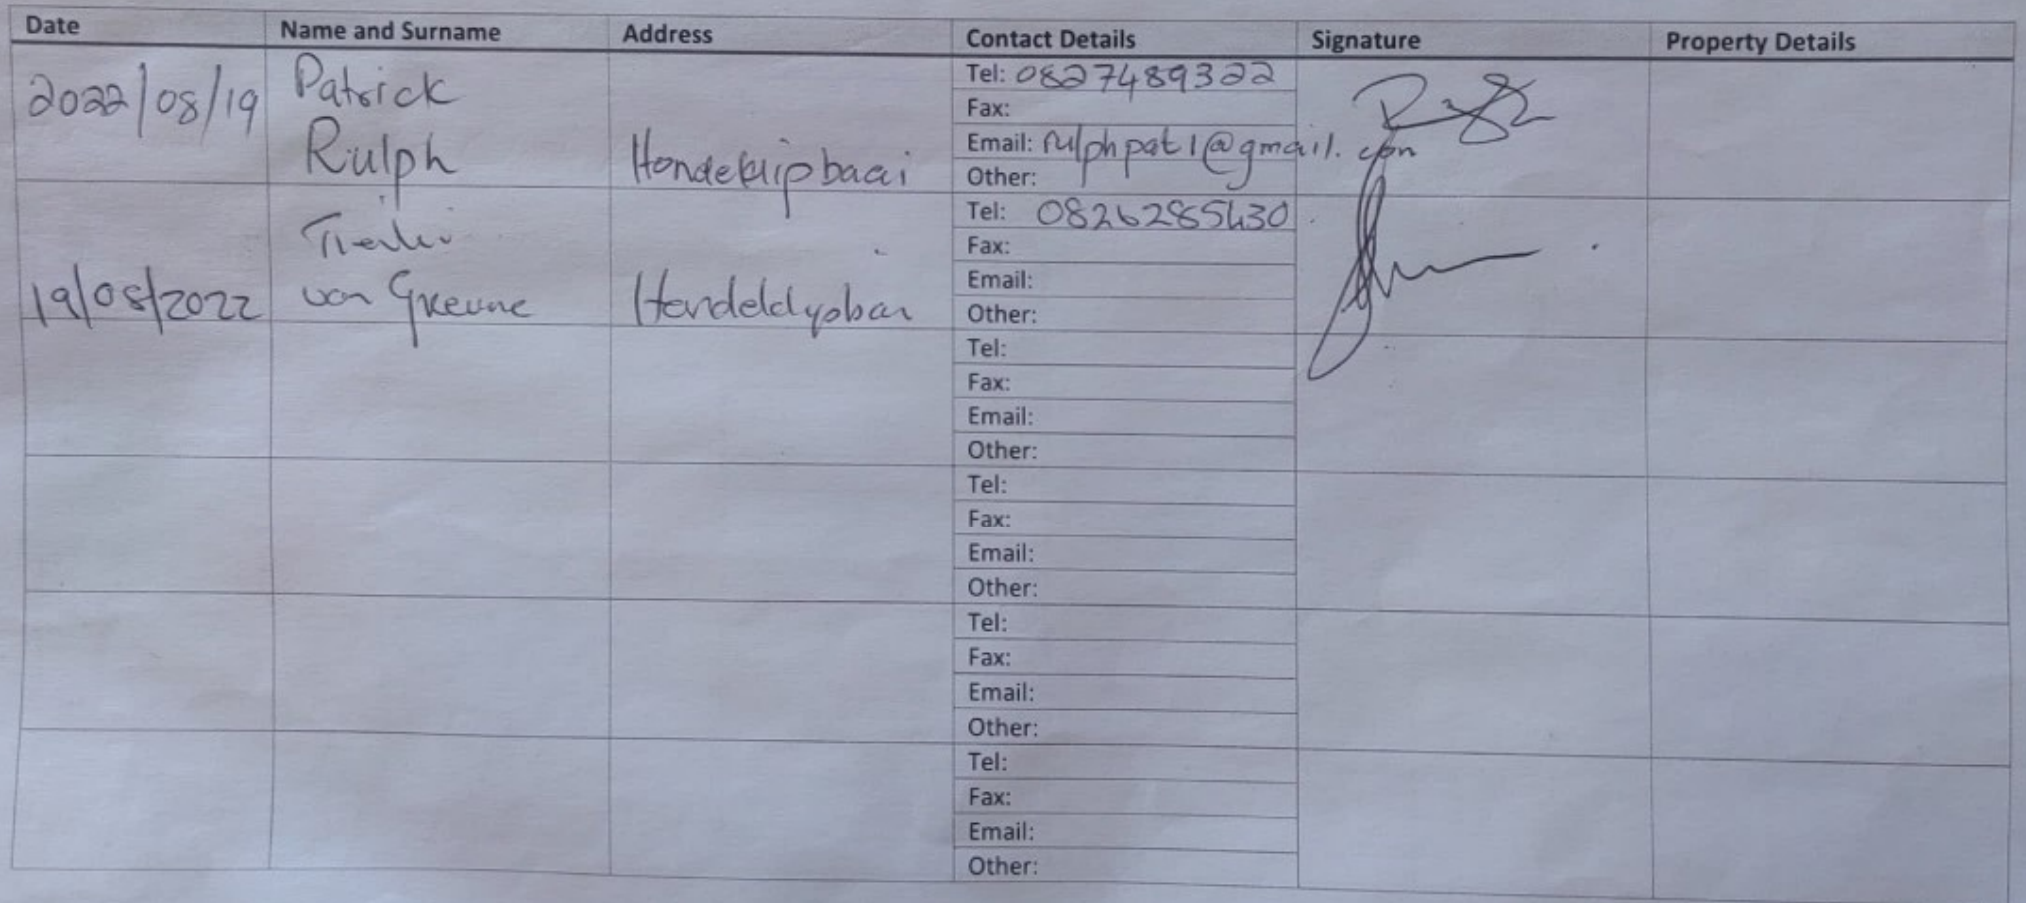 Date Name and Surname Address Contact Details Signature Property Details
2022/08/19 Patrick Rulph Hondeklipbaai
Tel: 0827489322
Fax:
Email: rulphpat1@gmail.com
Other:
19/08/2022 van Greune
Tel: 0826285430
Fax:
Email:
Other:
Tel:
Fax:
Email:
Other:
Tel:
Fax:
Email:
Other:
Tel:
Fax:
Email:
Other:
Tel:
Fax:
Email:
Other: